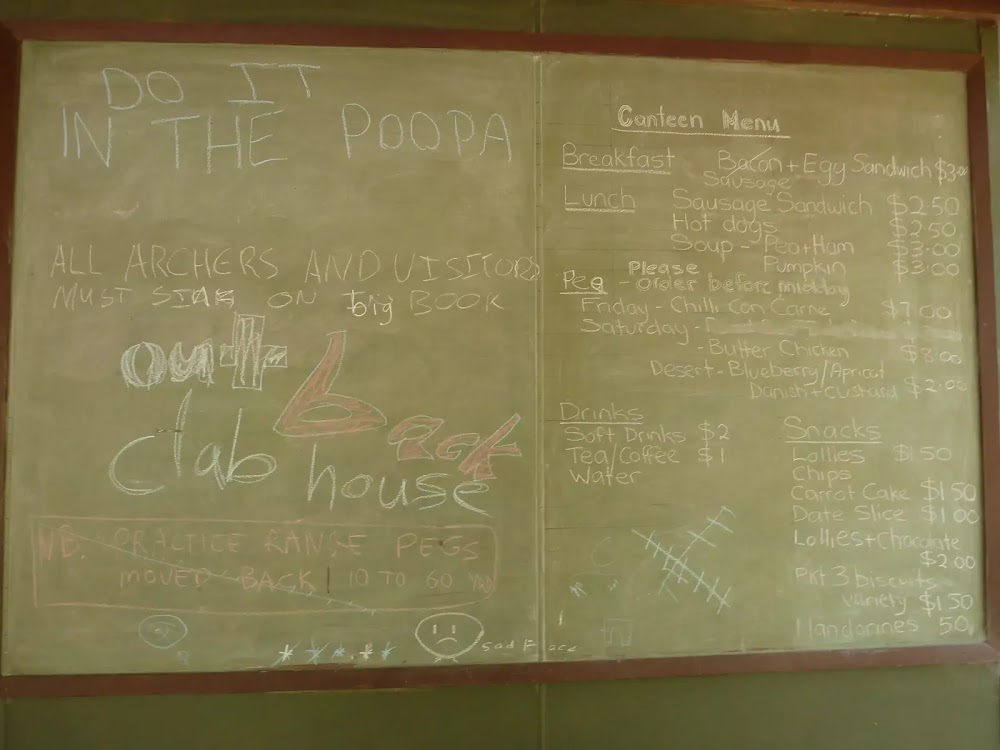 DO IT
IN THE POOPA
ALL ARCHERS AND VISITORS
MUST SIGN ON big BOOK
out back
clab house
NB. PRACTICE RANGE PEGS
MOVED BACK 10 TO 60 YRD
sad Face
Canteen Menu
Breakfast Bacon + Egg Sandwich $3.00
Sausage
Lunch Sausage Sandwich $2.50
Hot dogs $2.50
Soup - Pea + Ham $3.00
Pumpkin $3.00
Pea - Please order before midday
Friday - Chilli Con Carne $7.00
Saturday -
- Butter Chicken $8.00
Desert - Blueberry/Apricot
Danish + Custard $2.00
Drinks
Soft Drinks $2
Tea/Coffee $1
Water
Snacks
Lollies $1.50
Chips
Carrot Cake $1.50
Date Slice $1.00
Lollies + Chocolate
$2.00
Pkt 3 biscuits
variety $1.50
Mandarines 50